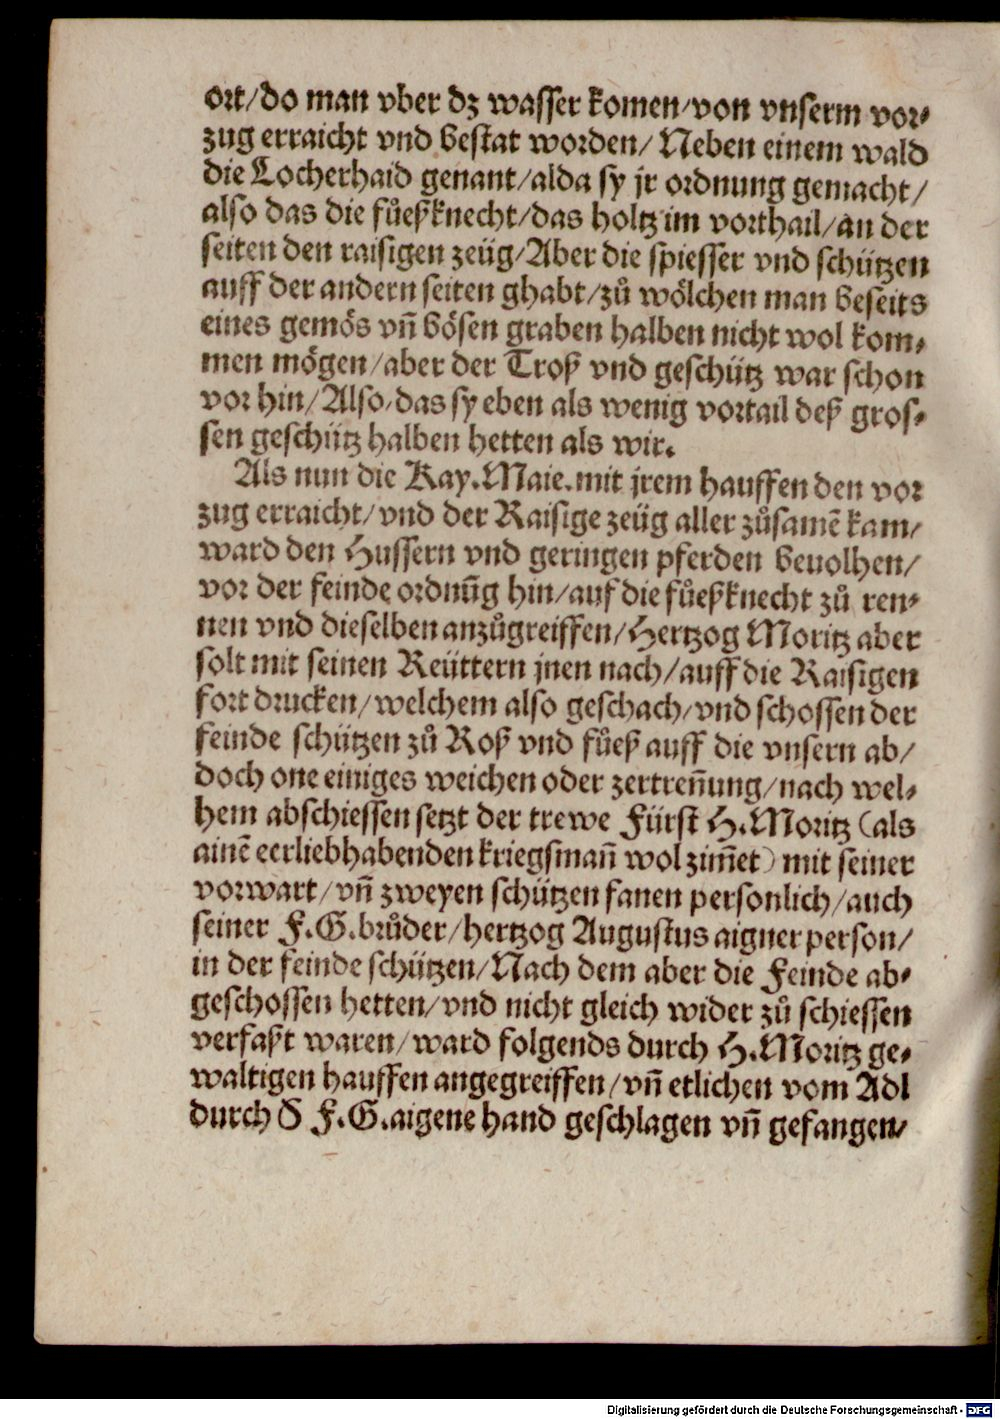 ort/do man vber dz wasser komen/von vnserm vor⸗
zug erraicht vnd bestat worden/ Neben einem wald
die Locherhaid genant/alda sy jr ordnung gemacht/
also das die fůeßknecht/das holtz im vorthail/an der
seiten den raisigen zeüg/Aber die spiesser vnd schützen
auff der andern seiten ghabt/zů wölchen man beseits
eines gemös vñ bösen graben halben nicht wol kom⸗
men mögen/aber der Troß vnd geschütz war schon
vor hin/Also/das sy eben als wenig vortail deß gros⸗
sen geschütz halben hetten als wir.
Als nun die Kay.Maie.mit jrem hauffen den vor
zug erraicht/vnd der Raisige zeüg aller zůsamẽ kam/
ward den Hussern vnd geringen pferden beuolhen/
vor der feinde ordnũg hin/auf die fůeßknecht zů ren⸗
nen vnd dieselben anzůgreiffen/Hertzog Moritz aber
solt mit seinen Reüttern jnen nach/auff die Raisigen
fort drucken/welchem also geschach/vnd schossen der
feinde schützen zů Roß vnd fůeß auff die vnsern ab/
doch one einiges weichen oder zertreñung/nach wel⸗
hem abschiessen setzt der trewe Fürst H.Moritz (als
ainẽ eerliebhabenden kriegsmañ wol zim̃et) mit seiner
vorwart/vñ zweyen schützen fanen personlich/auch
seiner F.G.brůder/hertzog Augustus aigner person/
in der feinde schützen/Nach dem aber die Feinde ab⸗
geschossen hetten/vnd nicht gleich wider zů schiessen
verfaßt waren/ward folgends durch H.Moritz ge⸗
waltigen hauffen angegreiffen/vñ etlichen vom Adl
durch S F.G.aigene hand geschlagen vñ gefangen/
Digitalisierung gefördert durch die Deutsche Forschungsgemeinschaft - DFG